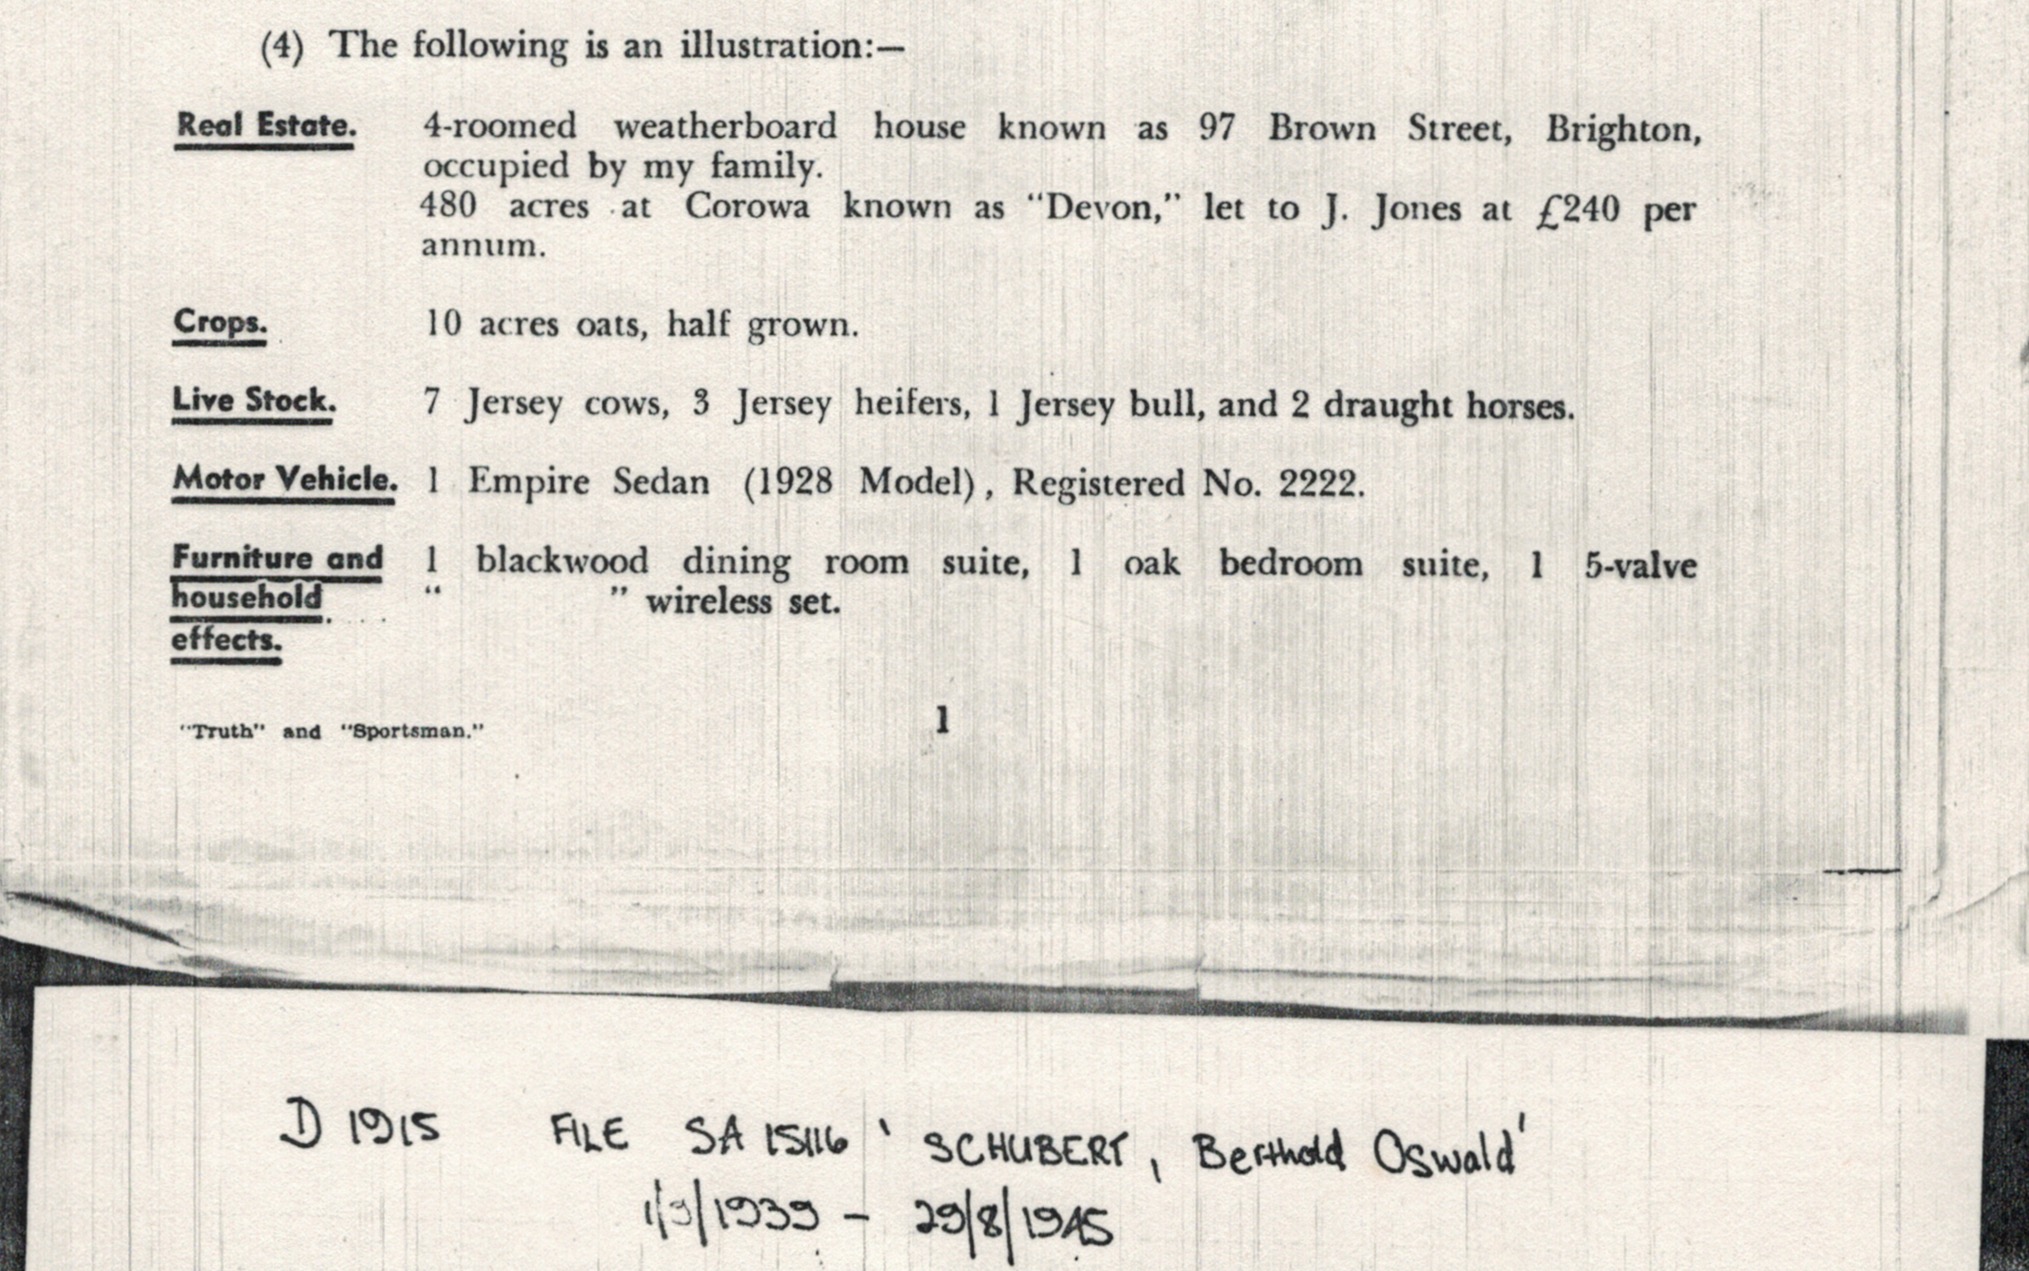 (4) The following is an illustration:—
Real Estate. 4-roomed weatherboard house known as 97 Brown Street, Brighton,
occupied by my family.
480 acres at Corowa known as “Devon,” let to J. Jones at £240 per
annum.
Crops. 10 acres oats, half grown.
Live Stock. 7 Jersey cows, 3 Jersey heifers, 1 Jersey bull, and 2 draught horses.
Motor Vehicle. 1 Empire Sedan (1928 Model), Registered No. 2222.
Furniture and 1 blackwood dining room suite, 1 oak bedroom suite, 1 5-valve
household “ ” wireless set.
effects.
“Truth” and “Sportsman.” 1
D 1915 FILE SA 15116 ' SCHUBERT, Berthold Oswald'
1/9/1939 – 29/8/1945